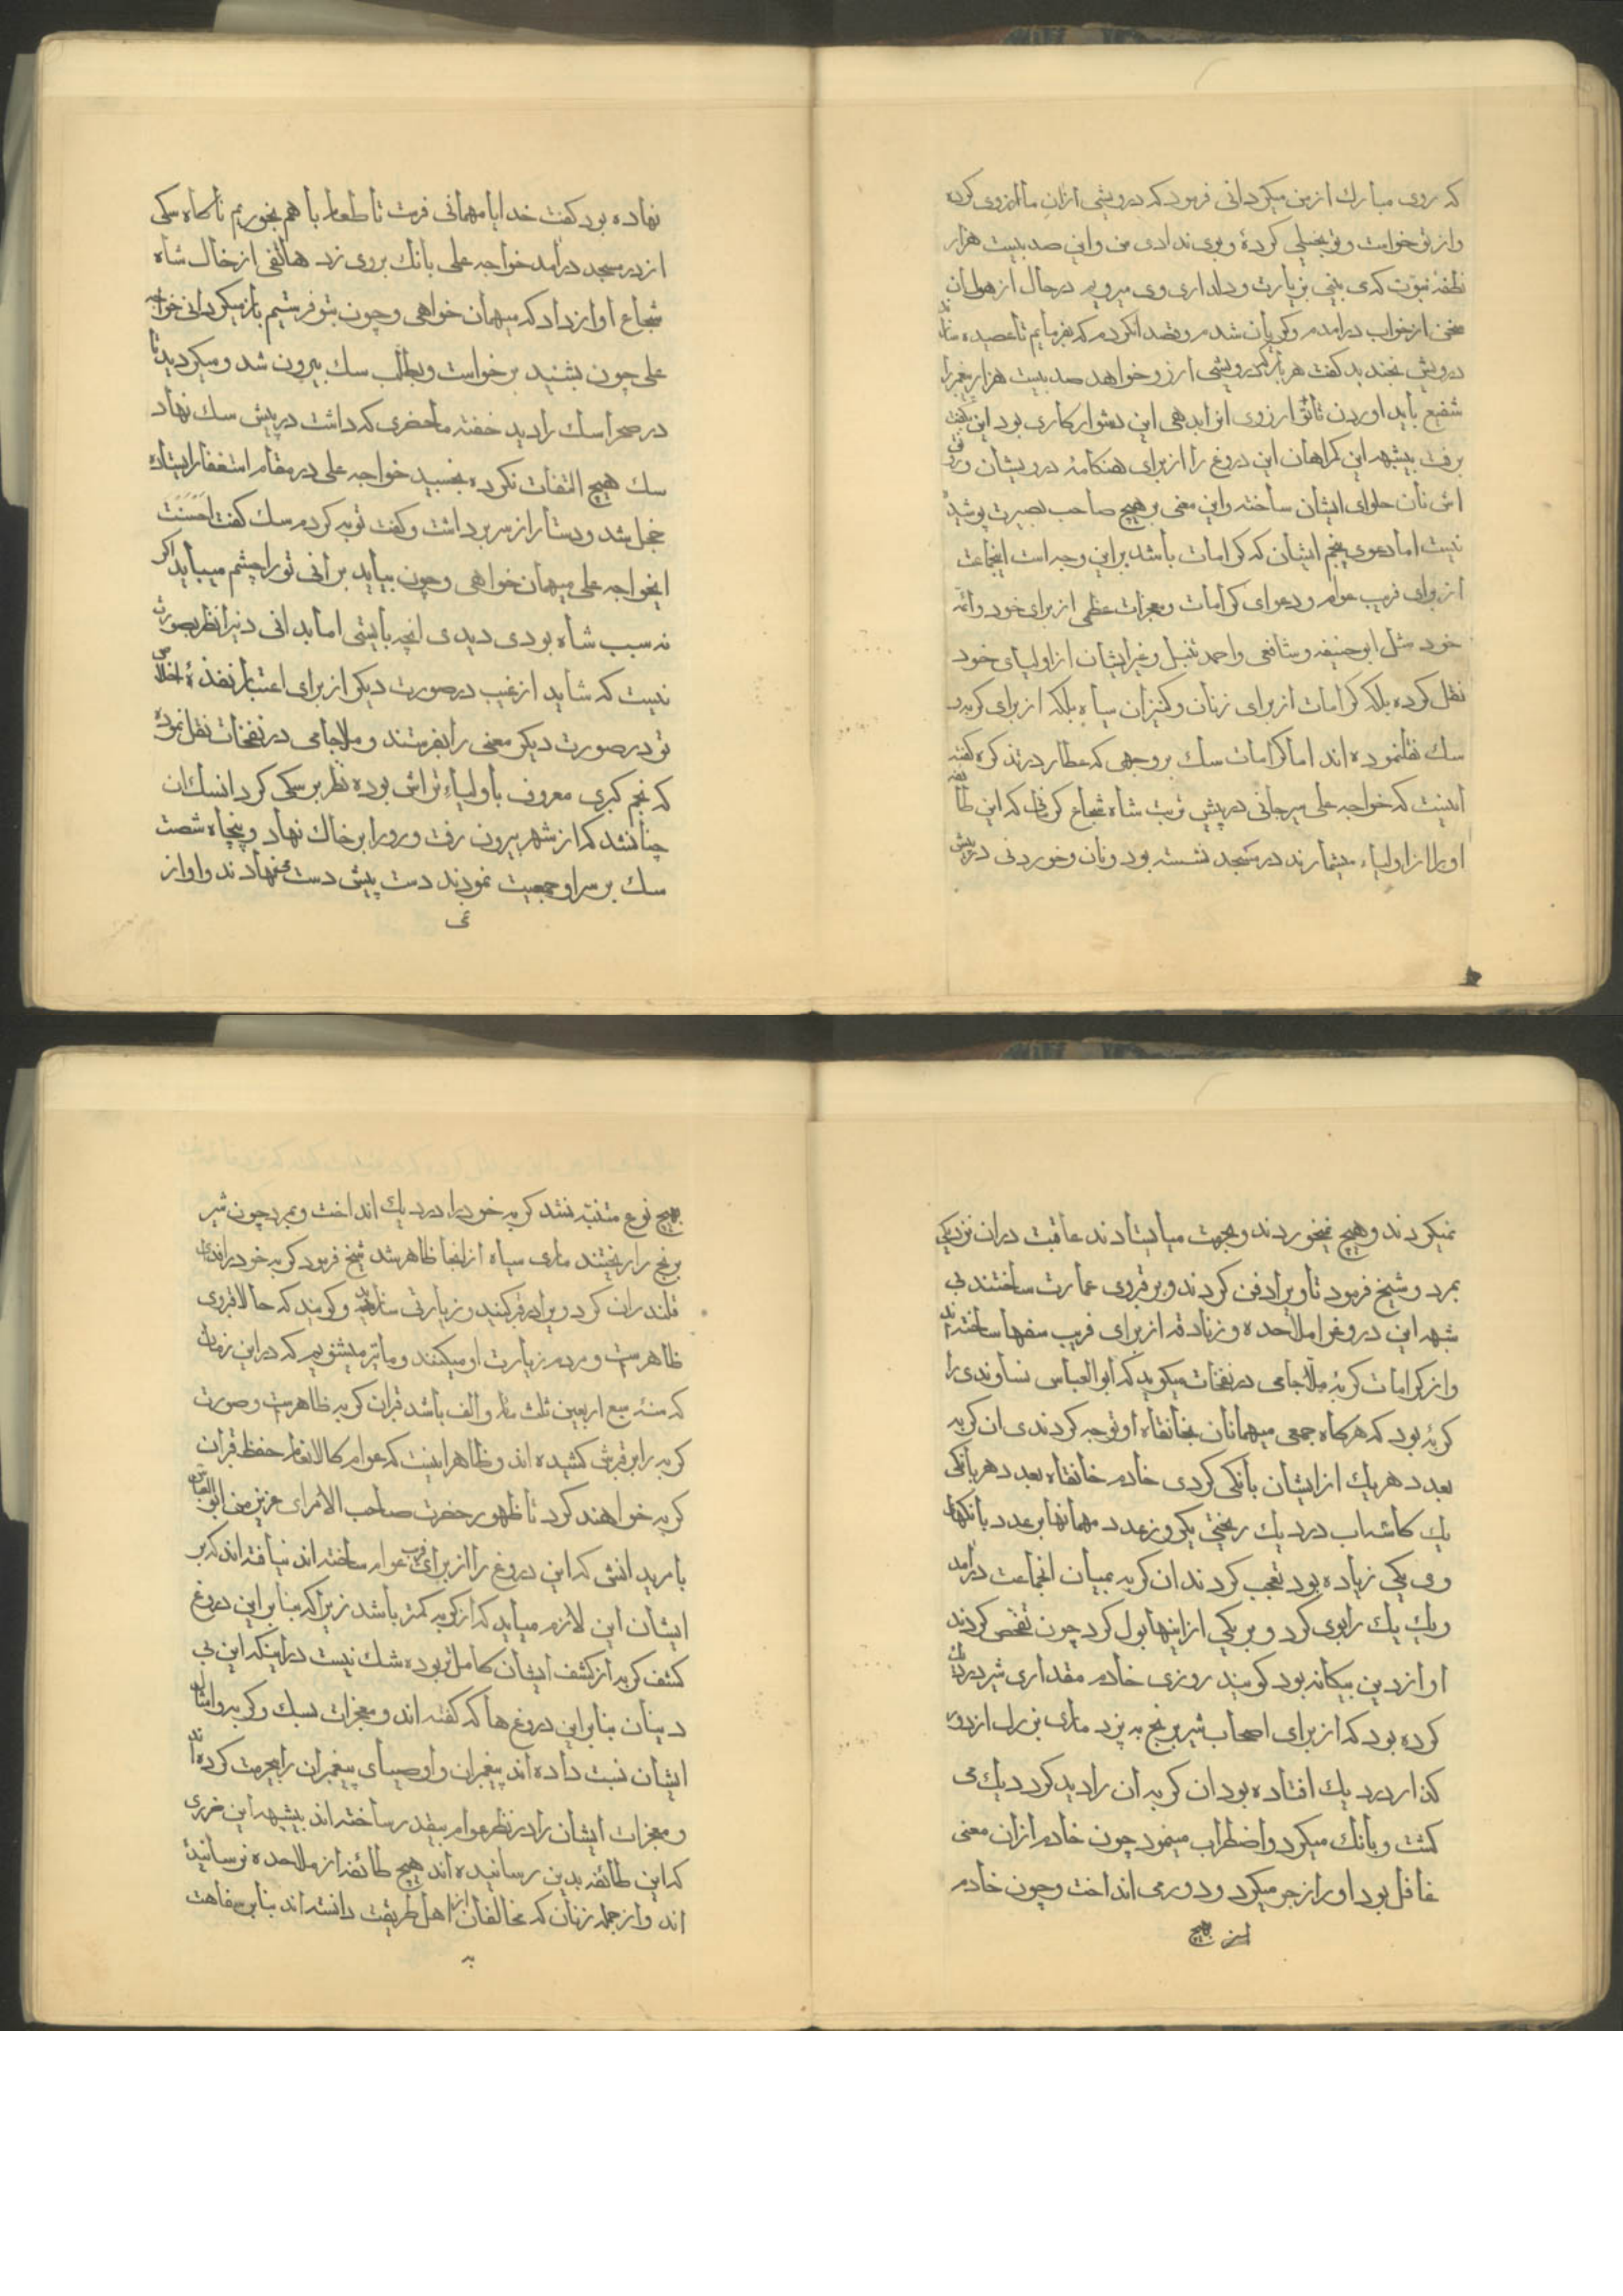 که روی مبارك از من میکردانی فرمود که درویشی ازان ما ارزوی کرده
و از تو خواست و تو بخیلی کردهٔ و بوی ندادی من و این صد بیست هزار
نطفهٔ نبوت که می بینی بزیارت و دلداری وی میرویم در حال از هول ان
سخن از خواب درامدم و کریان شدم و قصد انکردم که بفرمایم تا عصیده سازند
درویش بخندید کفت هر بارکه درویشی ارزو خواهد صد بیست هزار پیغمبر را
شفیع باید اوردن تا تو ارزوی او بدهی این دشوار کاری بود این بکفت
برفت بیشبهه این کمراهان این دروغ را از برای هنکامهٔ درویشان و رونق
اش نان حلوای ایشان ساخته و این معنی بر هیچ صاحب بصیرت پوشیده
نیست اما دعوی پنجم ایشان که کرامات باشد بر این وجه است اینجماعت
از برای فریب عوام و دعوای کرامات و معجزات عظمی از برای خود و ائمه
خود مثل ابو حنیفه و شافعی و احمد حنبل و غیر ایشان از اولیای خود
نقل کرده بلکه کرامات از برای زنان و کنیزان سیاه بلکه از برای کربه و
سك نقلنموده اند اما کرامات سك بر وجهی که عطار در تذکره کفته
اینست که خواجه علی سیرجانی در پیش تربت شاه شجاع کرمانی که این طائفه
او را از اولیاء میشمارند در مسجد نشسته بود و نان و خوردنی در پیش
نهاده بود کفت خدایا مهمانی فرست تا طعام با هم بخوریم ناکاه سکی
از در مسجد درامد خواجه علی بانك بر وی زد هاتفی از خاك شاه
شجاع اواز داد که میهمان خواهی و چون بتو فرستیم باز میکردانی خواجه
علی چون بشنید برخواست و بطلب سك بیرون شد و میکردید تا
در صحرا سك را دید خفته ماحضری که داشت در پیش سك نهاد
سك هیچ التفات نکرده بخسبید خواجه علی در مقام استغفار ایستاده
خجل شد و دستار از سر برداشت و کفت توبه کردم سك کفت احسنت
ایخواجه علی میهمان خواهی و چون بیاید برانی تو را چشم میباید اکر
نه سبب شاه بودی دیدی انچه بایستی اما بدانی در نظر بصورت
نیست که شاید از غیب در صورت دیکر از برای اعتبار نفذهٔ اخلاص
تو در صورت دیکر معنی را بفرستند و ملا جامی در نفحات نقل نموده
که نجم کبری معروف با ولیاء تراش بوده نظر بر سکی کرد انسك ان
چنانشد که از شهر بیرون رفت و رو را بر خاك نهاد و پنجاه شصت
سك بر سر او جمعیت نمودند دست پیش دست می نهادند و اواز
نمیکردند و هیچ نمیخوردند و بجهت میایستادند عاقبت دران نزدیکی
بمرد و شیخ فرمود تا ویرا دفن کردند و بر قبروی عمارت ساختند بی
شبهه این دروغرا ملاحده و زنادقه از برای فریب سفها ساخته اند
و از کرامات کربهٔ ملا جامی در نفحات میکوید که ابو العباس نساوندی را
کربهٔ بود که هرکاه جمعی میهمانان بخانقاه او توجه کردندی ان کربه
بعدد هر یك از ایشان بانکی کردی خادم خانقاه بعدد هر بانکی
یك کاسه اب در دیك ریختی یکروز عدد مهمانها بر عدد بانکهای
وی یکی زیاده بود تعجب کردند ان کربه بمیان انجماعت درامد
و یك یك را بوی کرد و بر یکی از اینها بول کرد چون تفحص کردند
او از دین بیکانه بود کویند روزی خادم مقداری شیر در دیك
کرده بود که از برای اصحاب شیر برنج به پزد ماری بزرك از دود
کذار در دیك افتاده بود ان کربه ان را دید کرد دیك می
کشت و بانك میکرد و اضطراب مینمود چون خادم ازان معنی
غافل بود او را زجر میکرد و دور می انداخت و چون خادم
از هیچ
هیچ نوع متنبه نشد کربه خود را در دیك انداخت و بمرد چون شیر
برنج را ریختند ماری سیاه از انجا ظاهر شد شیخ فرمود کربه خود را فدای
قلندران کرد ویرا در قبر کنید و زیارتی سازید و کویند که حالا قبروی
ظاهر ست و مردم زیارت او میکنند و ما نیز میشنویم که در این زمان
که سنه سبع اربعین ثلث مائه و الف باشد قبران کربه ظاهر ست و صورت
کربه را بر قبرش کشیده اند و ظاهر اینست که عوام کالانعام حفظ قبران
کربه خواهند کرد تا ظهور حضرت صاحب الامر ای عزیز من ابو العباس
با مریدانش که این دروغ را از برای فریب عوام ساخته اند نیافته اند که بر
ایشان این لازم میاید که از کربه کمتر باشد زیرا که بنا بر این دروغ
کشف کربه از کشف ایشان کامل تر بوده شك نیست در اینکه این بی
دینان بنا بر این دروغ ها که کفته اند و معجزات بسك و کربه و امثال
ایشان نسبت داده اند پیغمبران و اوصیای پیغمبران را بیحرمت کرده اند
و معجزات ایشان را در نظر عوام بیقدر ساخته اند بیشبهه این ضرری
که این طائفه بدین رسانیده اند هیچ طائفه از ملاحده نرسانیده
اند و از جمله زنان که مخالفان از اهل طریقت دانسته اند بنا بر سفاهت